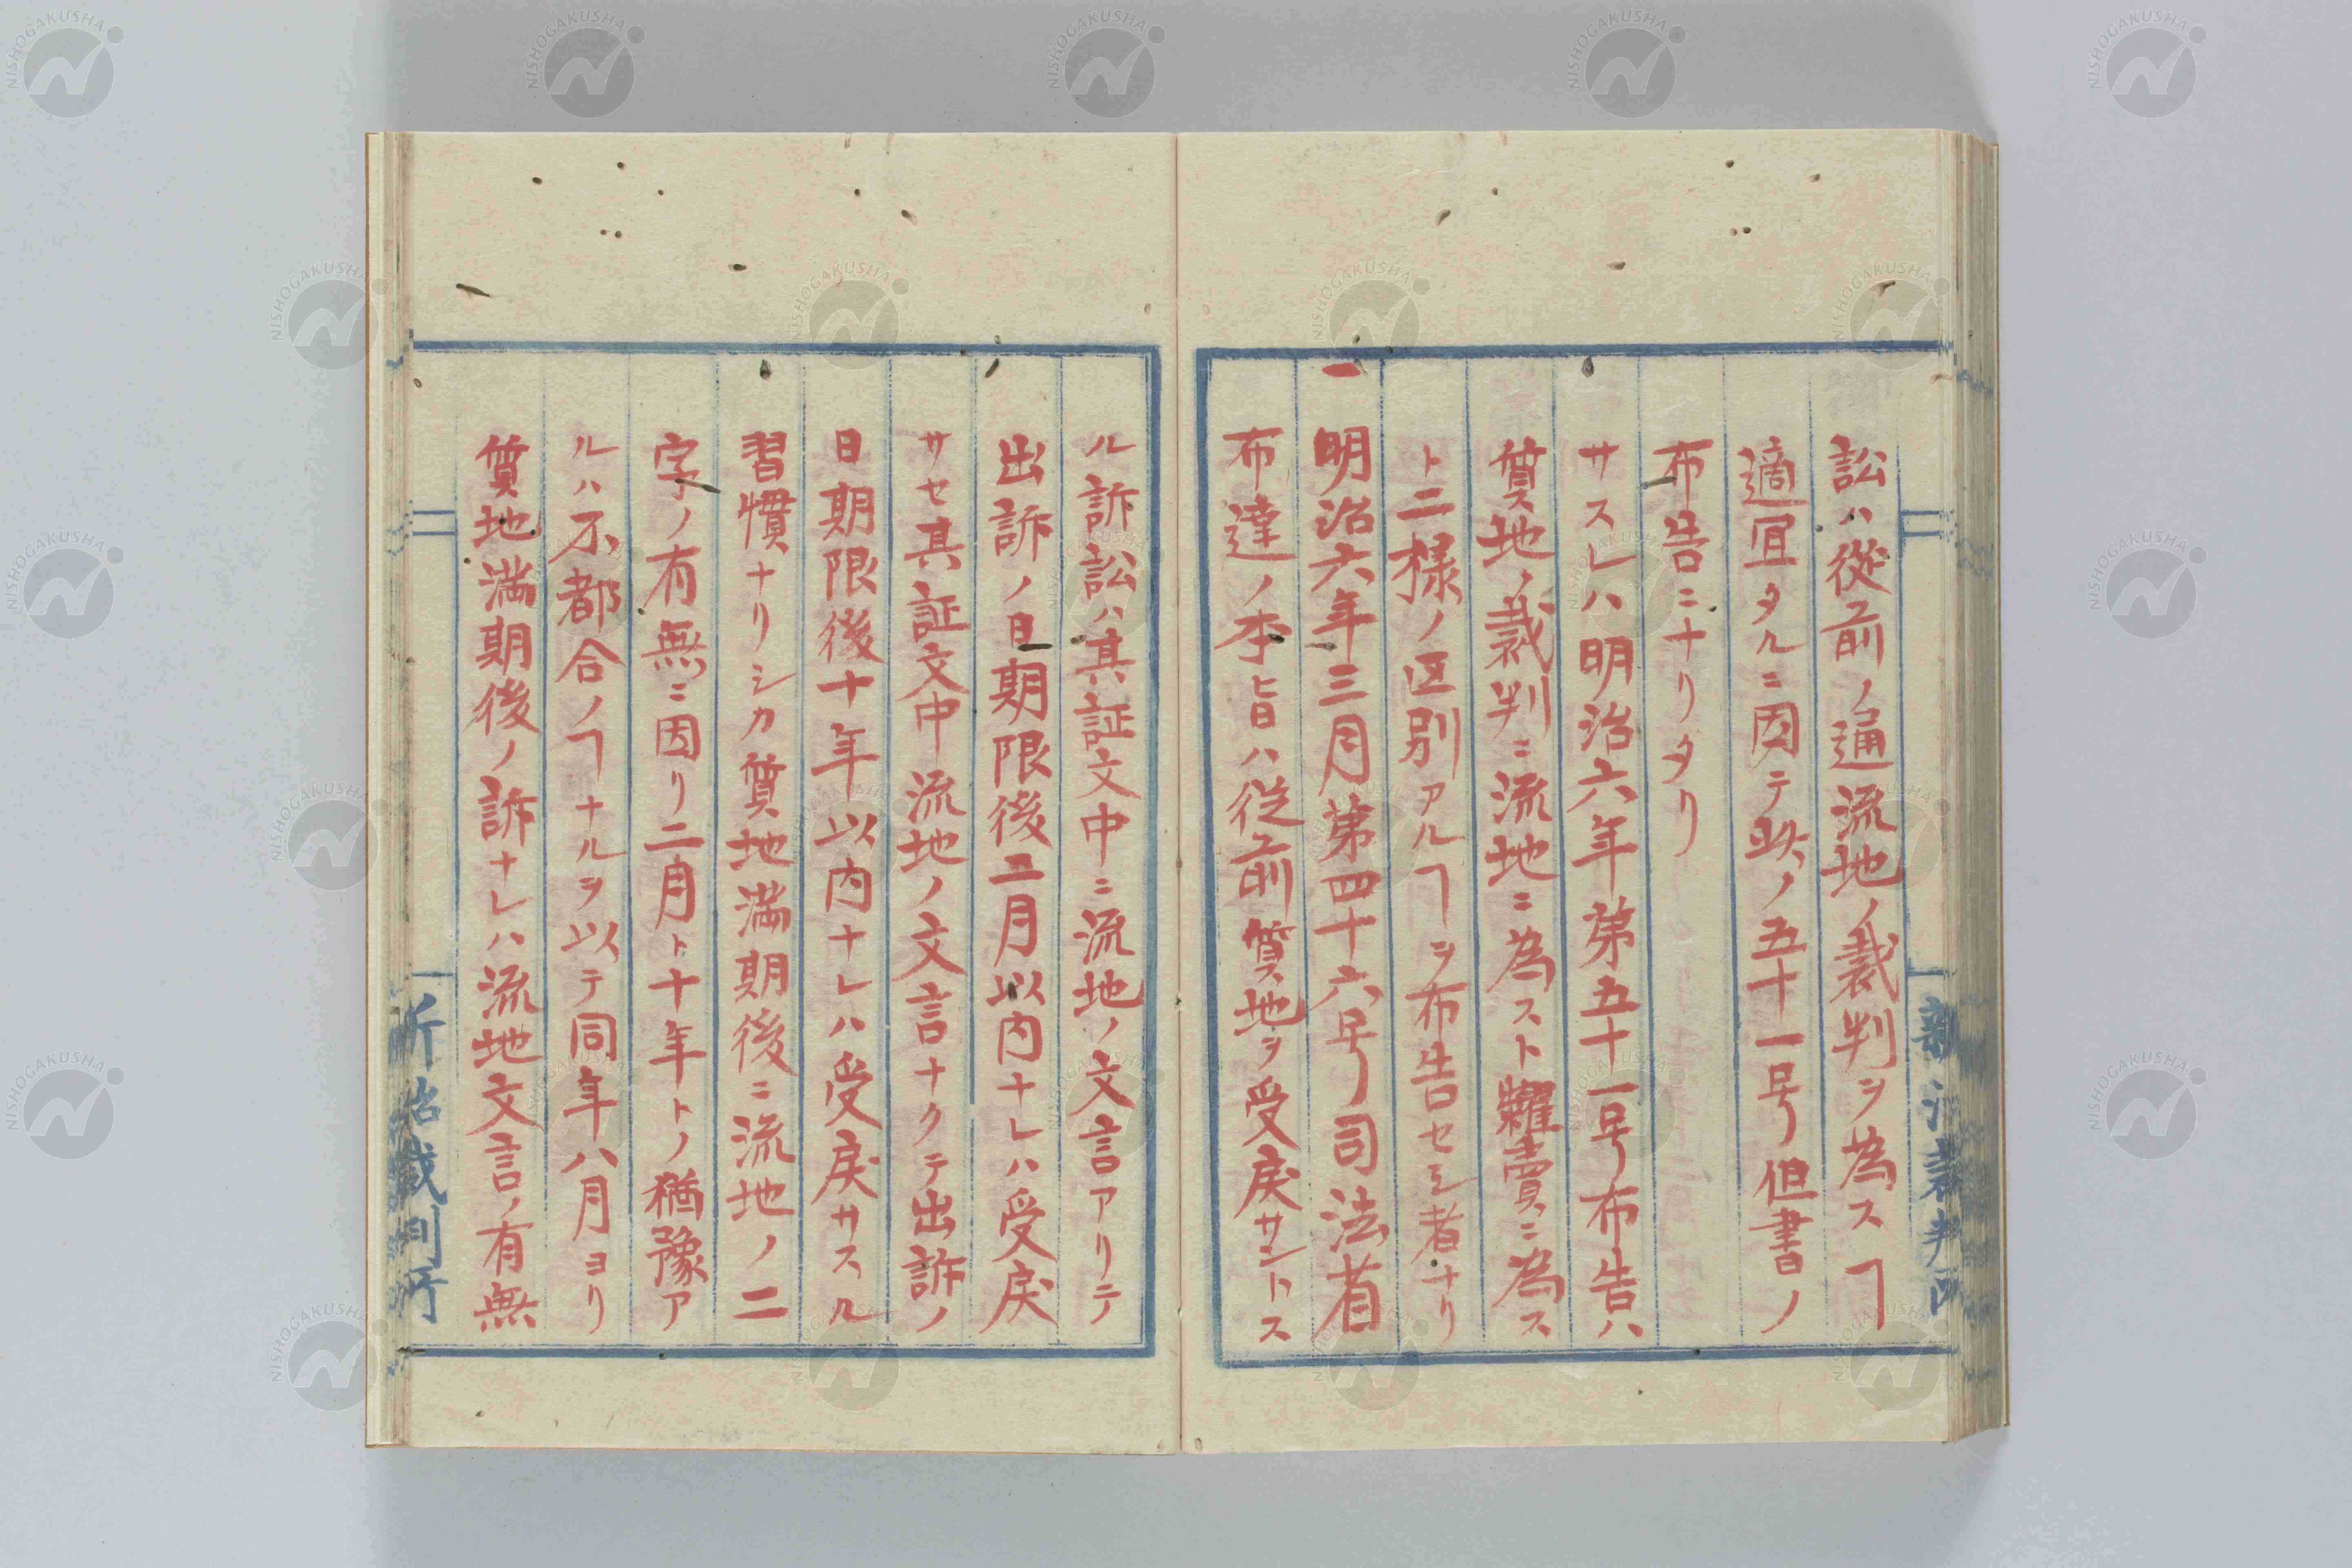 訟ハ從前ノ通流地ノ裁判ヲ為スヿ
適宜タルニ因テ此ノ五十一号但書ノ
布告ニナリタリ
サスレハ明治六年第五十一号布告ハ
質地ノ裁判ニ流地ニ為スト糶賣ニ為ス
ト二様ノ区別アルヿヲ布告セシ者ナリ
一明治六年三月第四十六号司法省
布達ノ本旨ハ従前質地ヲ受戻サントス
ル訴訟ハ其証文中ニ流地ノ文言アリテ
出訴ノ日期限後二月以内ナレハ受戻
サセ其証文中流地ノ文言ナクテ出訴ノ
日期限後十年以内ナレハ受戻サスル
習慣ナリシカ質地満期後ニ流地ノ二
字ノ有無ニ因リ二月ト十年トノ猶豫ア
ルハ不都合ノヿナルヲ以テ同年八月ヨリ
質地満期後ノ訴ナレハ流地文言ノ有無
新治裁判所
新治裁判所
NISHOGAKUSHA